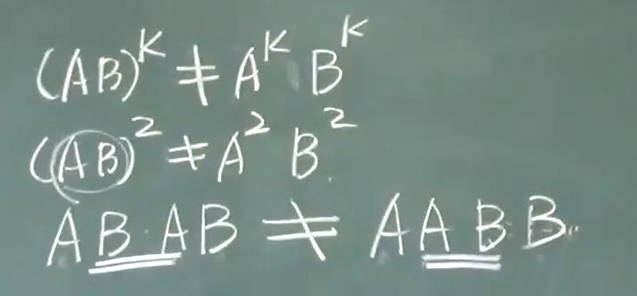 (AB)^K ≠ A^K B^K
(AB)^2 ≠ A^2 B^2
AB·AB ≠ AABB